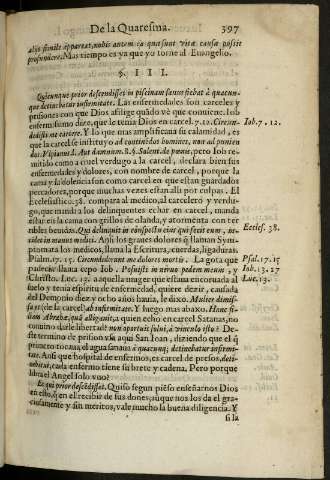 De la Quaresma. 397
prosuniere. Mas tiempo es ya que yo torne al Euangelio.
§. III.
Quicunque prior descendisset in piscinam sanus fiebat à quacun-
que detinebatur infirmitate. Las enfermedades son carceles y
prisiones con que Dios aflige quãdo vè que conuiene. Iob
enfermissimo dize, que le tenia Dios en carcel. 7. 12. Circun- Iob. 7. 12.
dedisti me carcere. Y lo que mas amplificaua su calamidad, es
que la carcel se instituyo ad continendos homines, non ad punien
dos. Vlpianus l. Aut damnum. §. 4. Solent. de pœnis, pero Iob re-
mitido como a cruel verdugo a la carcel, declara bien sus
enfermedades y dolores, con nombre de carcel, porque la
cama y la dolencia son como carcel en que estan guardados
pecadores, porque muchas vezes estan alli por culpas. El
Ecclesiastico. 38. compara al medico, al carcelero y verdu-
go, que manda a los delinquentes echar en carcel, manda
estar en la cama con grillos de olanda, y atormenta con ter
ribles beuidas. Qui delinquit in conspectu eius qui fecit eum, in- Eccles. 38.
cidet in manus medici. Aqui los graues dolores q̃ llaman Sym-
ptomata los medicos, llama la Escritura, cuerdas, ligaduras.
Psalm. 17. 15. Circundederunt me dolores mortis. La gota que Psal. 17. 15
padecia llama cepo Iob. Posuisti in neruo pedem meum, y Iob. 13. 27
Christo. Luc. 13. a aquella muger que estaua encoruada al Luc. 13.
suelo y tenia espiritu de enfermedad, quiere dezir, causada
del Demonio diez y ocho años hauia, le dixo. Mulier dimis-
sa es (de la carcel) ab infirmitate. Y luego mas abaxo. Hanc fi-
liam Abrahæ, quã alligauit, a quien echo en carcel Satanas, no
conuino darle libertad? non oportuit solui, à vinculo isto? De-
ste termino de prision vsa aqui San Ioan, diziendo que el q̃
primero tocaua el agua sanaua à quacunq; detinebatur infirmi-
tate. Ansi que hospital de enfermos, es carcel de presos, deti-
nebat, cada enfermo tiene su brete y cadena. Pero porque
libra el Angel solo vno?
Et qui prior descẽdisset. Quiso segun piẽso enseñarnos Dios
en esto, q̃ en el recibir de sus dones, aũque nos los da el gra-
ciosamente y sin meritos, vale mucho la buena diligencia. Y
si la